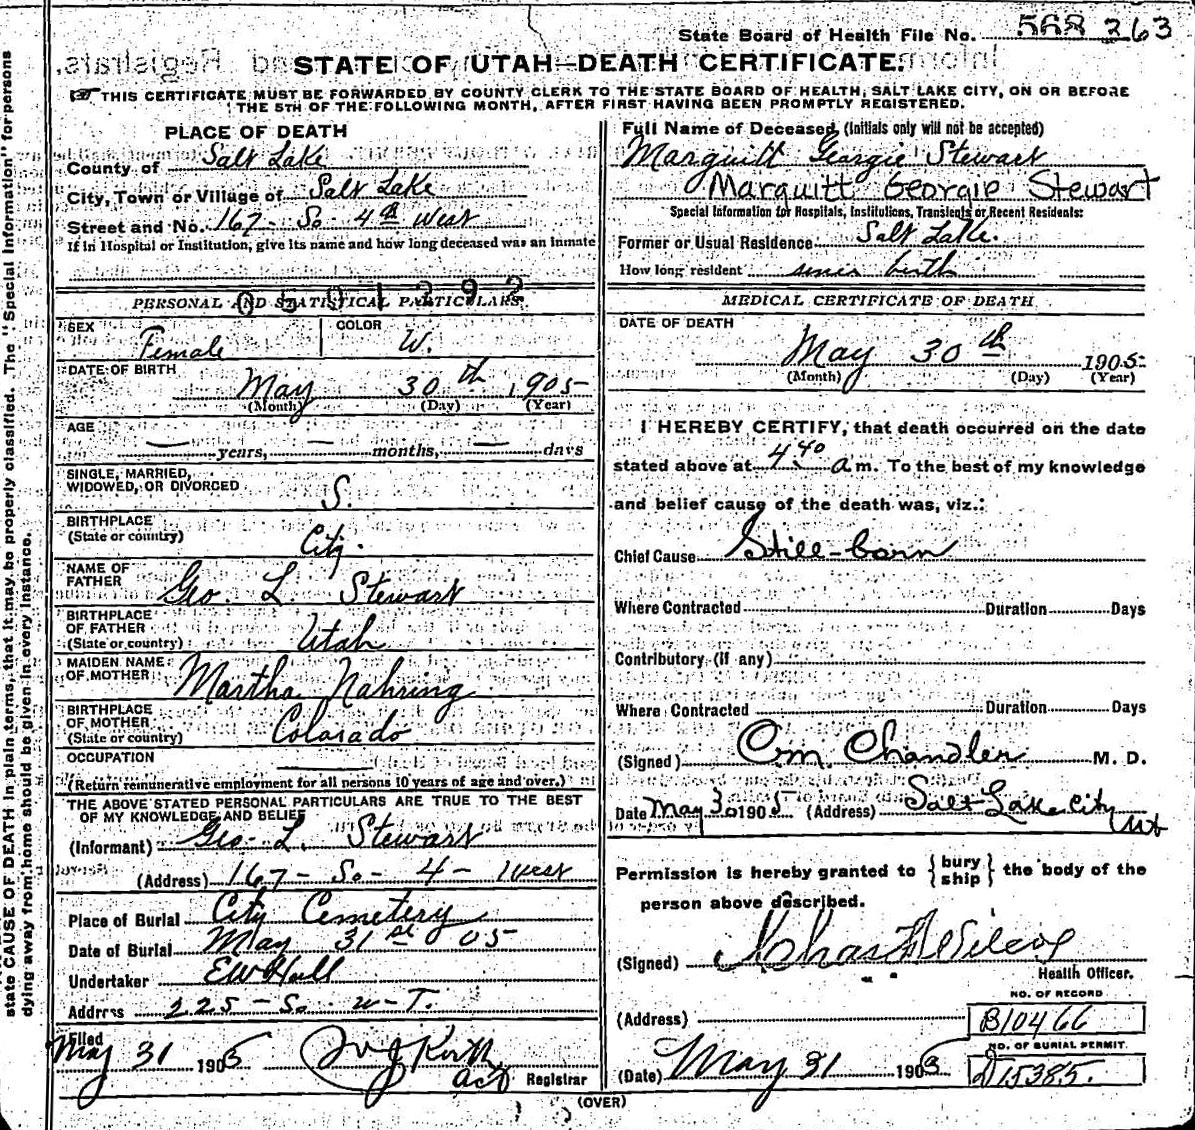 State Board of Health File No. 568 263
STATE OF UTAH—DEATH CERTIFICATE.
THIS CERTIFICATE MUST BE FORWARDED BY COUNTY CLERK TO THE STATE BOARD OF HEALTH, SALT LAKE CITY, ON OR BEFORE
THE 5TH OF THE FOLLOWING MONTH, AFTER FIRST HAVING BEEN PROMPTLY REGISTERED.
PLACE OF DEATH
County of Salt Lake
City, Town or Village of Salt Lake
Street and No. 167- So 4th West
If in Hospital or Institution, give its name and how long deceased was an inmate
PERSONAL AND STATISTICAL PARTICULARS.
SEX Female COLOR W.
DATE OF BIRTH
May 30th, 1905
(Month) (Day) (Year)
AGE
— years, — months, — days
SINGLE, MARRIED,
WIDOWED, OR DIVORCED S.
BIRTHPLACE
(State or country) City.
NAME OF
FATHER Geo. L. Stewart
BIRTHPLACE
OF FATHER
(State or country) Utah
MAIDEN NAME
OF MOTHER Martha Nahring
BIRTHPLACE
OF MOTHER
(State or country) Colorado
OCCUPATION
(Return remunerative employment for all persons 10 years of age and over.)
THE ABOVE STATED PERSONAL PARTICULARS ARE TRUE TO THE BEST
OF MY KNOWLEDGE AND BELIEF
(Informant) Geo. L. Stewart
(Address) 167- So- 4- West
Place of Burial City Cemetery
Date of Burial May 31st 05
Undertaker EW Hall
Address 225- So. W- T.
Filed
May 31 1905
Registrar
(OVER)
Full Name of Deceased, (Initials only will not be accepted)
Marguitt Georgie Stewart
Marquitt Georgie Stewart
Special Information for Hospitals, Institutions, Transients or Recent Residents:
Former or Usual Residence Salt Lake.
How long resident since birth
MEDICAL CERTIFICATE OF DEATH
DATE OF DEATH
May 30th 1905
(Month) (Day) (Year)
I HEREBY CERTIFY, that death occurred on the date
stated above at 4.40 a m. To the best of my knowledge
and belief cause of the death was, viz.:
Chief Cause Still-born
Where Contracted Duration Days
Contributory (if any)
Where Contracted Duration Days
(Signed) O.m. Chandler M. D.
Date May 30 1905 (Address) Salt Lake City Ut
Permission is hereby granted to {bury ship} the body of the
person above described.
(Signed) Chas F Wilcox
Health Officer.
(Address)
NO. OF RECORD
B10466
NO. OF BURIAL PERMIT.
D15385.
(Date) May 31 1905
state CAUSE OF DEATH in plain terms, that it may be properly classified. The "Special Information" for persons
dying away from home should be given in every instance.